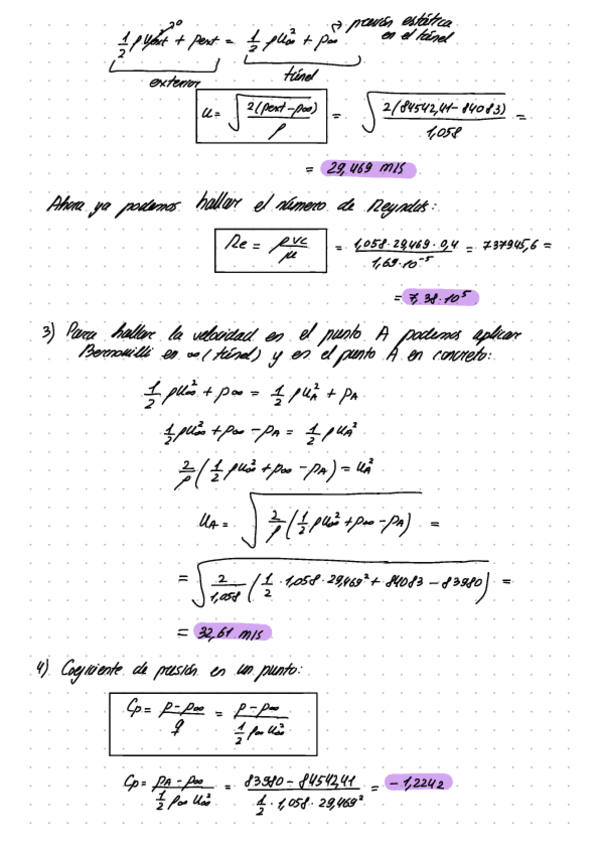 1/2 ρ u²ext → 0 + pext = 1/2 ρu∞² + p∞ → presión estática en el túnel
exterior túnel
u = √(2(pext-p∞)/ρ) = √(2(84542,41-84083)/1,058) =
= 29,469 m/s
Ahora ya podemos hallar el número de Reynolds:
Re = ρvc/μ = 1,058·29,469·0,4/1,69·10⁻⁵ = 737945,6 =
= 7,38·10⁵
3) Para hallar la velocidad en el punto A podemos aplicar
Bernouilli en ∞ (túnel) y en el punto A en concreto:
1/2 ρu∞² + p∞ = 1/2 ρu_A² + p_A
1/2 ρu∞² + p∞ - p_A = 1/2 ρu_A²
2/ρ (1/2 ρu∞² + p∞ - p_A) = u_A²
u_A = √(2/ρ (1/2 ρu∞² + p∞ - p_A)) =
= √(2/1,058 (1/2 · 1,058 · 29,469² + 84083 - 83980)) =
= 32,61 m/s
4) Coeficiente de presión en un punto:
Cp = p-p∞/q = p-p∞/(1/2 ρ∞ u∞²)
Cp = p_A-p∞/(1/2 ρ∞ u∞²) = 83980-84542,41/(1/2 · 1,058 · 29,469²) = -1,2242